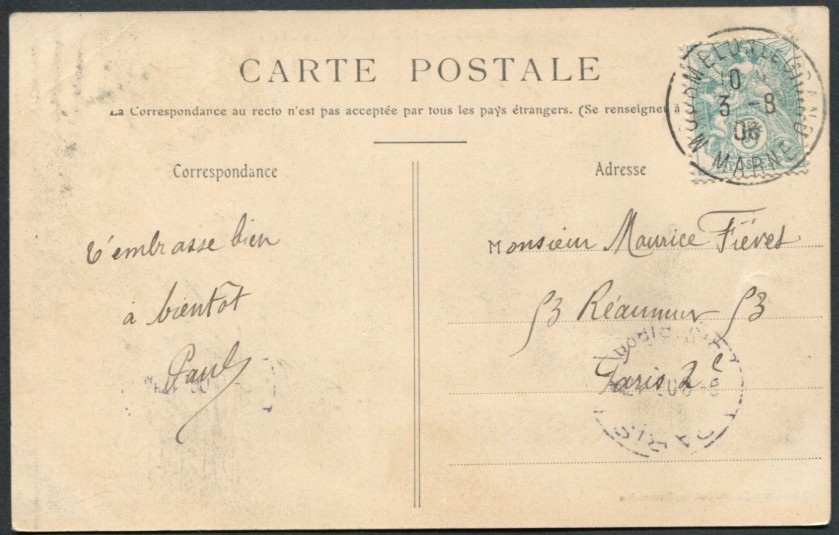 CARTE POSTALE
La Correspondance au recto n'est pas acceptée par tous les pays étrangers. (Se renseigner à
MOURMELON-LE-GRAND
10
3 -8
06
MARNE
Correspondance
Adresse
t'embrasse bien
à bientôt
Paul
Monsieur Maurice Fiévet
53 Réaumur 53
Paris 2e
PARIS